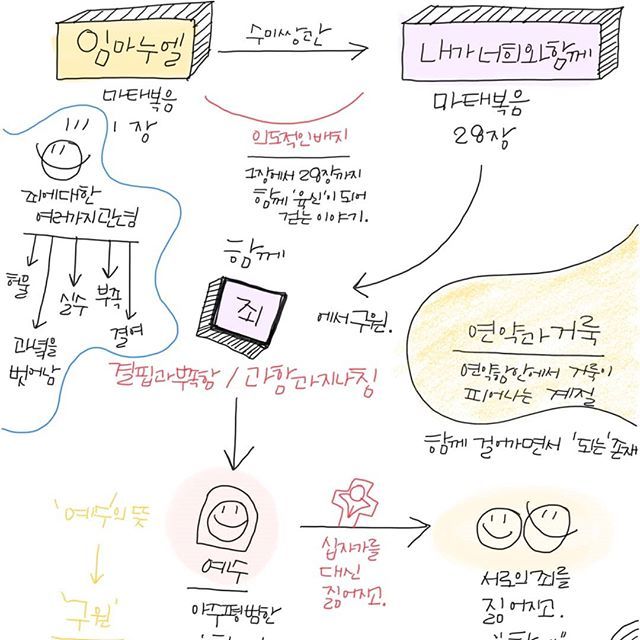 임마누엘
수미상관
내가 너희와 함께
마태복음
1장
마태복음
28장
의도적인 배치
1장에서 28장까지
함께 '육신'이 되어
걷는 이야기.
죄에 대한
여러가지 관념
허물
과녁을
벗어남
실수
부족
결여
함께
죄
에서 구원.
결핍과 부족함 / 과함과 지나침
연약과 거룩
연약함 안에서 거룩이
피어나는 계절
함께 걸어가면서 '되는' 존재
'예수'의 뜻
'구원'
예수
아주 평범한
십자가를
대신
짊어지고.
서로의 죄를
짊어지고.
"함께"